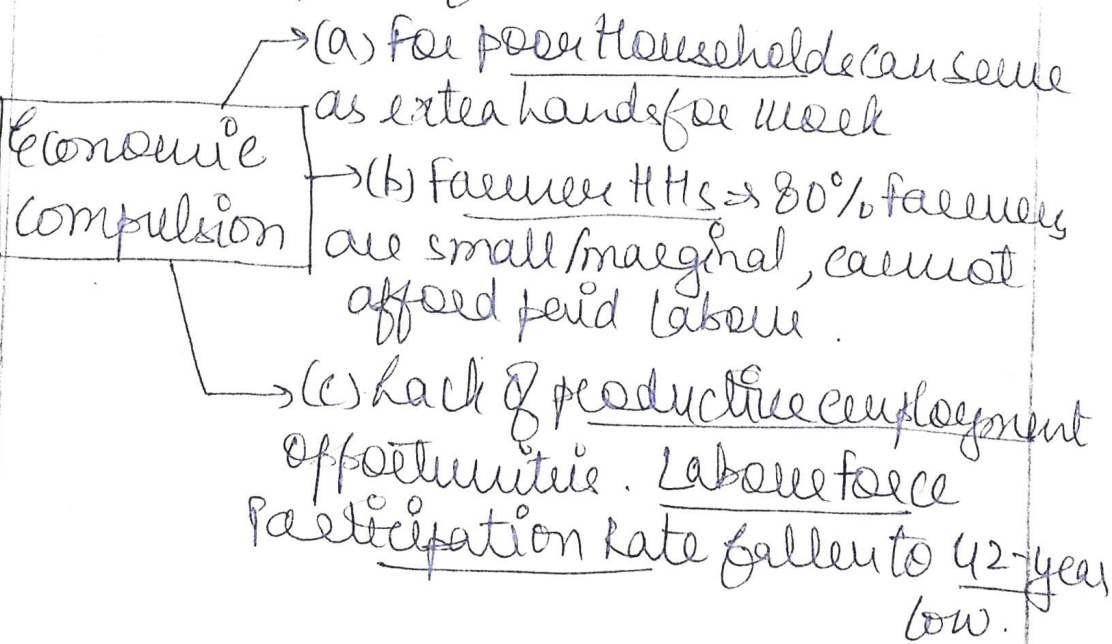 →(a) For poor Households can serve
as extra hands for work
Economic
compulsion
→(b) Farmer HHs ⇒ 80% farmers
are small/marginal, cannot
afford paid labour.
→(c) Lack of productive employment
opportunities. Labour force
Participation Rate fallen to 42-year
low.